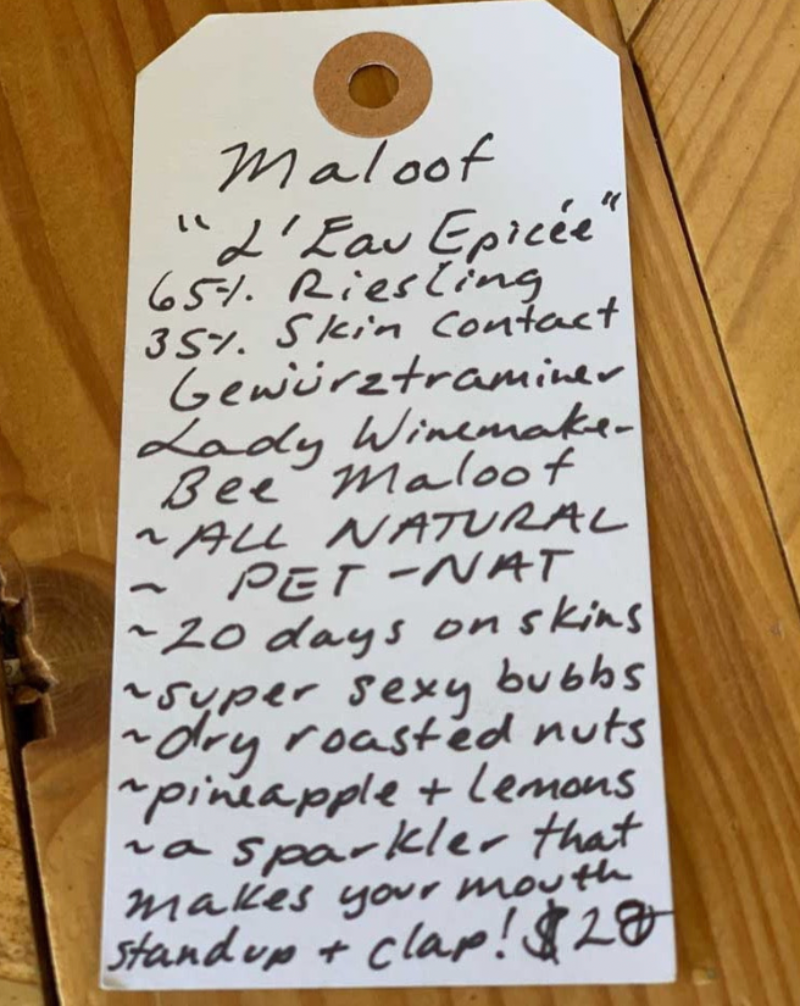 Maloof
"L'Eau Epicée"
65%. Riesling
35%. Skin Contact
Gewürztraminer
Lady Winemaker
Bee Maloof
~ALL NATURAL
~ PET-NAT
~20 days on skins
~super sexy bubbs
~dry roasted nuts
~pineapple + lemons
~a sparkler that
makes your mouth
stand up + clap!